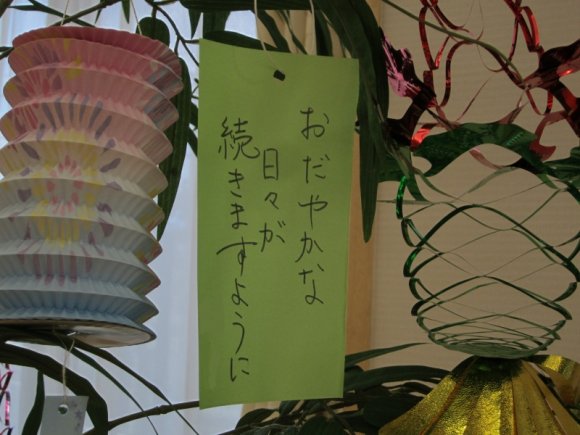 おだやかな
日々が
続きますように